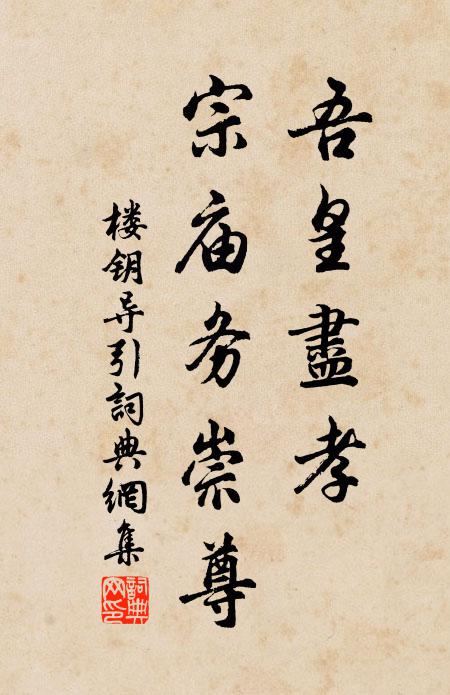 吾皇盡孝
宗庙务崇尊
楼钥导引詞典網集
詞典网印